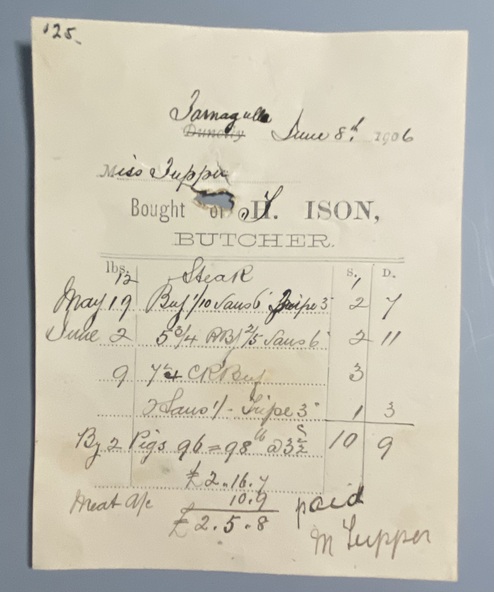 125.
Tarnagulla
Dunolly June 8th 1906
Miss Tupper
Bought of H. ISON,
BUTCHER.
lbs. S. D.
12 Steak 1
May 19 Beef 1/10 Saus 6 Tripe 3" 2 7
June 2 5 3/4 RB/ 2/5 Saus 6" 2 11
9 CR Beef 3
2 Saus 1/- Tripe 3" 1 3
By 2 Pigs 96 = 98 lb @ 3½ 10 9
£2.16.7
Meat A/c 10.9 paid
£2.5.8
M Tupper